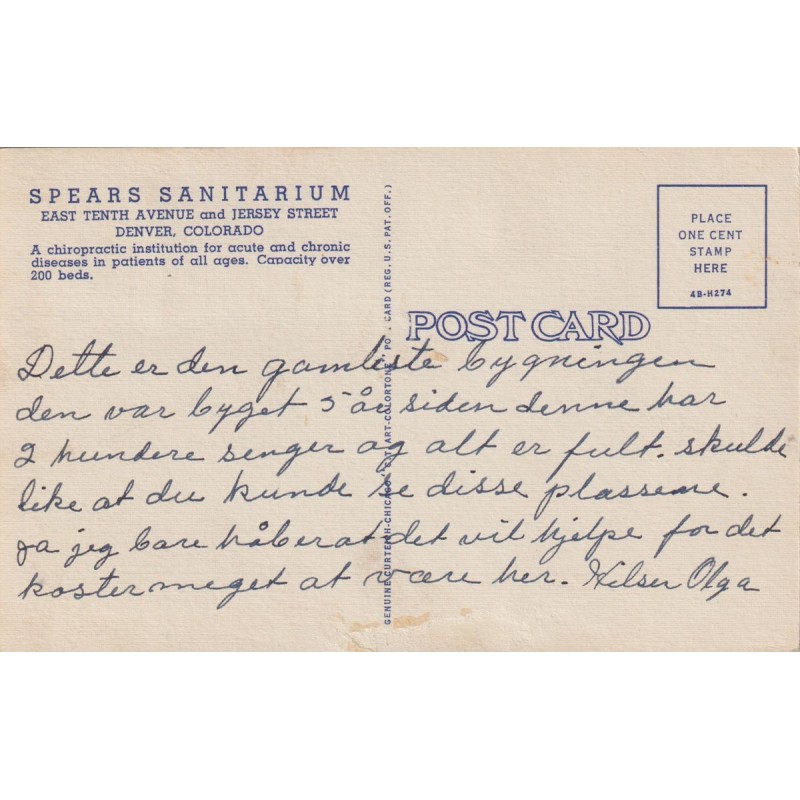 SPEARS SANITARIUM
EAST TENTH AVENUE and JERSEY STREET
DENVER, COLORADO
A chiropractic institution for acute and chronic
diseases in patients of all ages. Capacity over
200 beds.
GENUINE CURTEICH-CHICAGO "C.T. ART-COLORTONE" PO CARD (REG. U.S. PAT. OFF.)
PLACE
ONE CENT
STAMP
HERE
4B-H274
POST CARD
Dette er den gamleste bygningen
den var byget 5 år siden denne har
2 hundere senger og alt er fult. skulde
like at du kunde se disse plassene.
Ja jeg bare håber at det vil hjelpe for det
koster meget at være her. Hilsen Olga